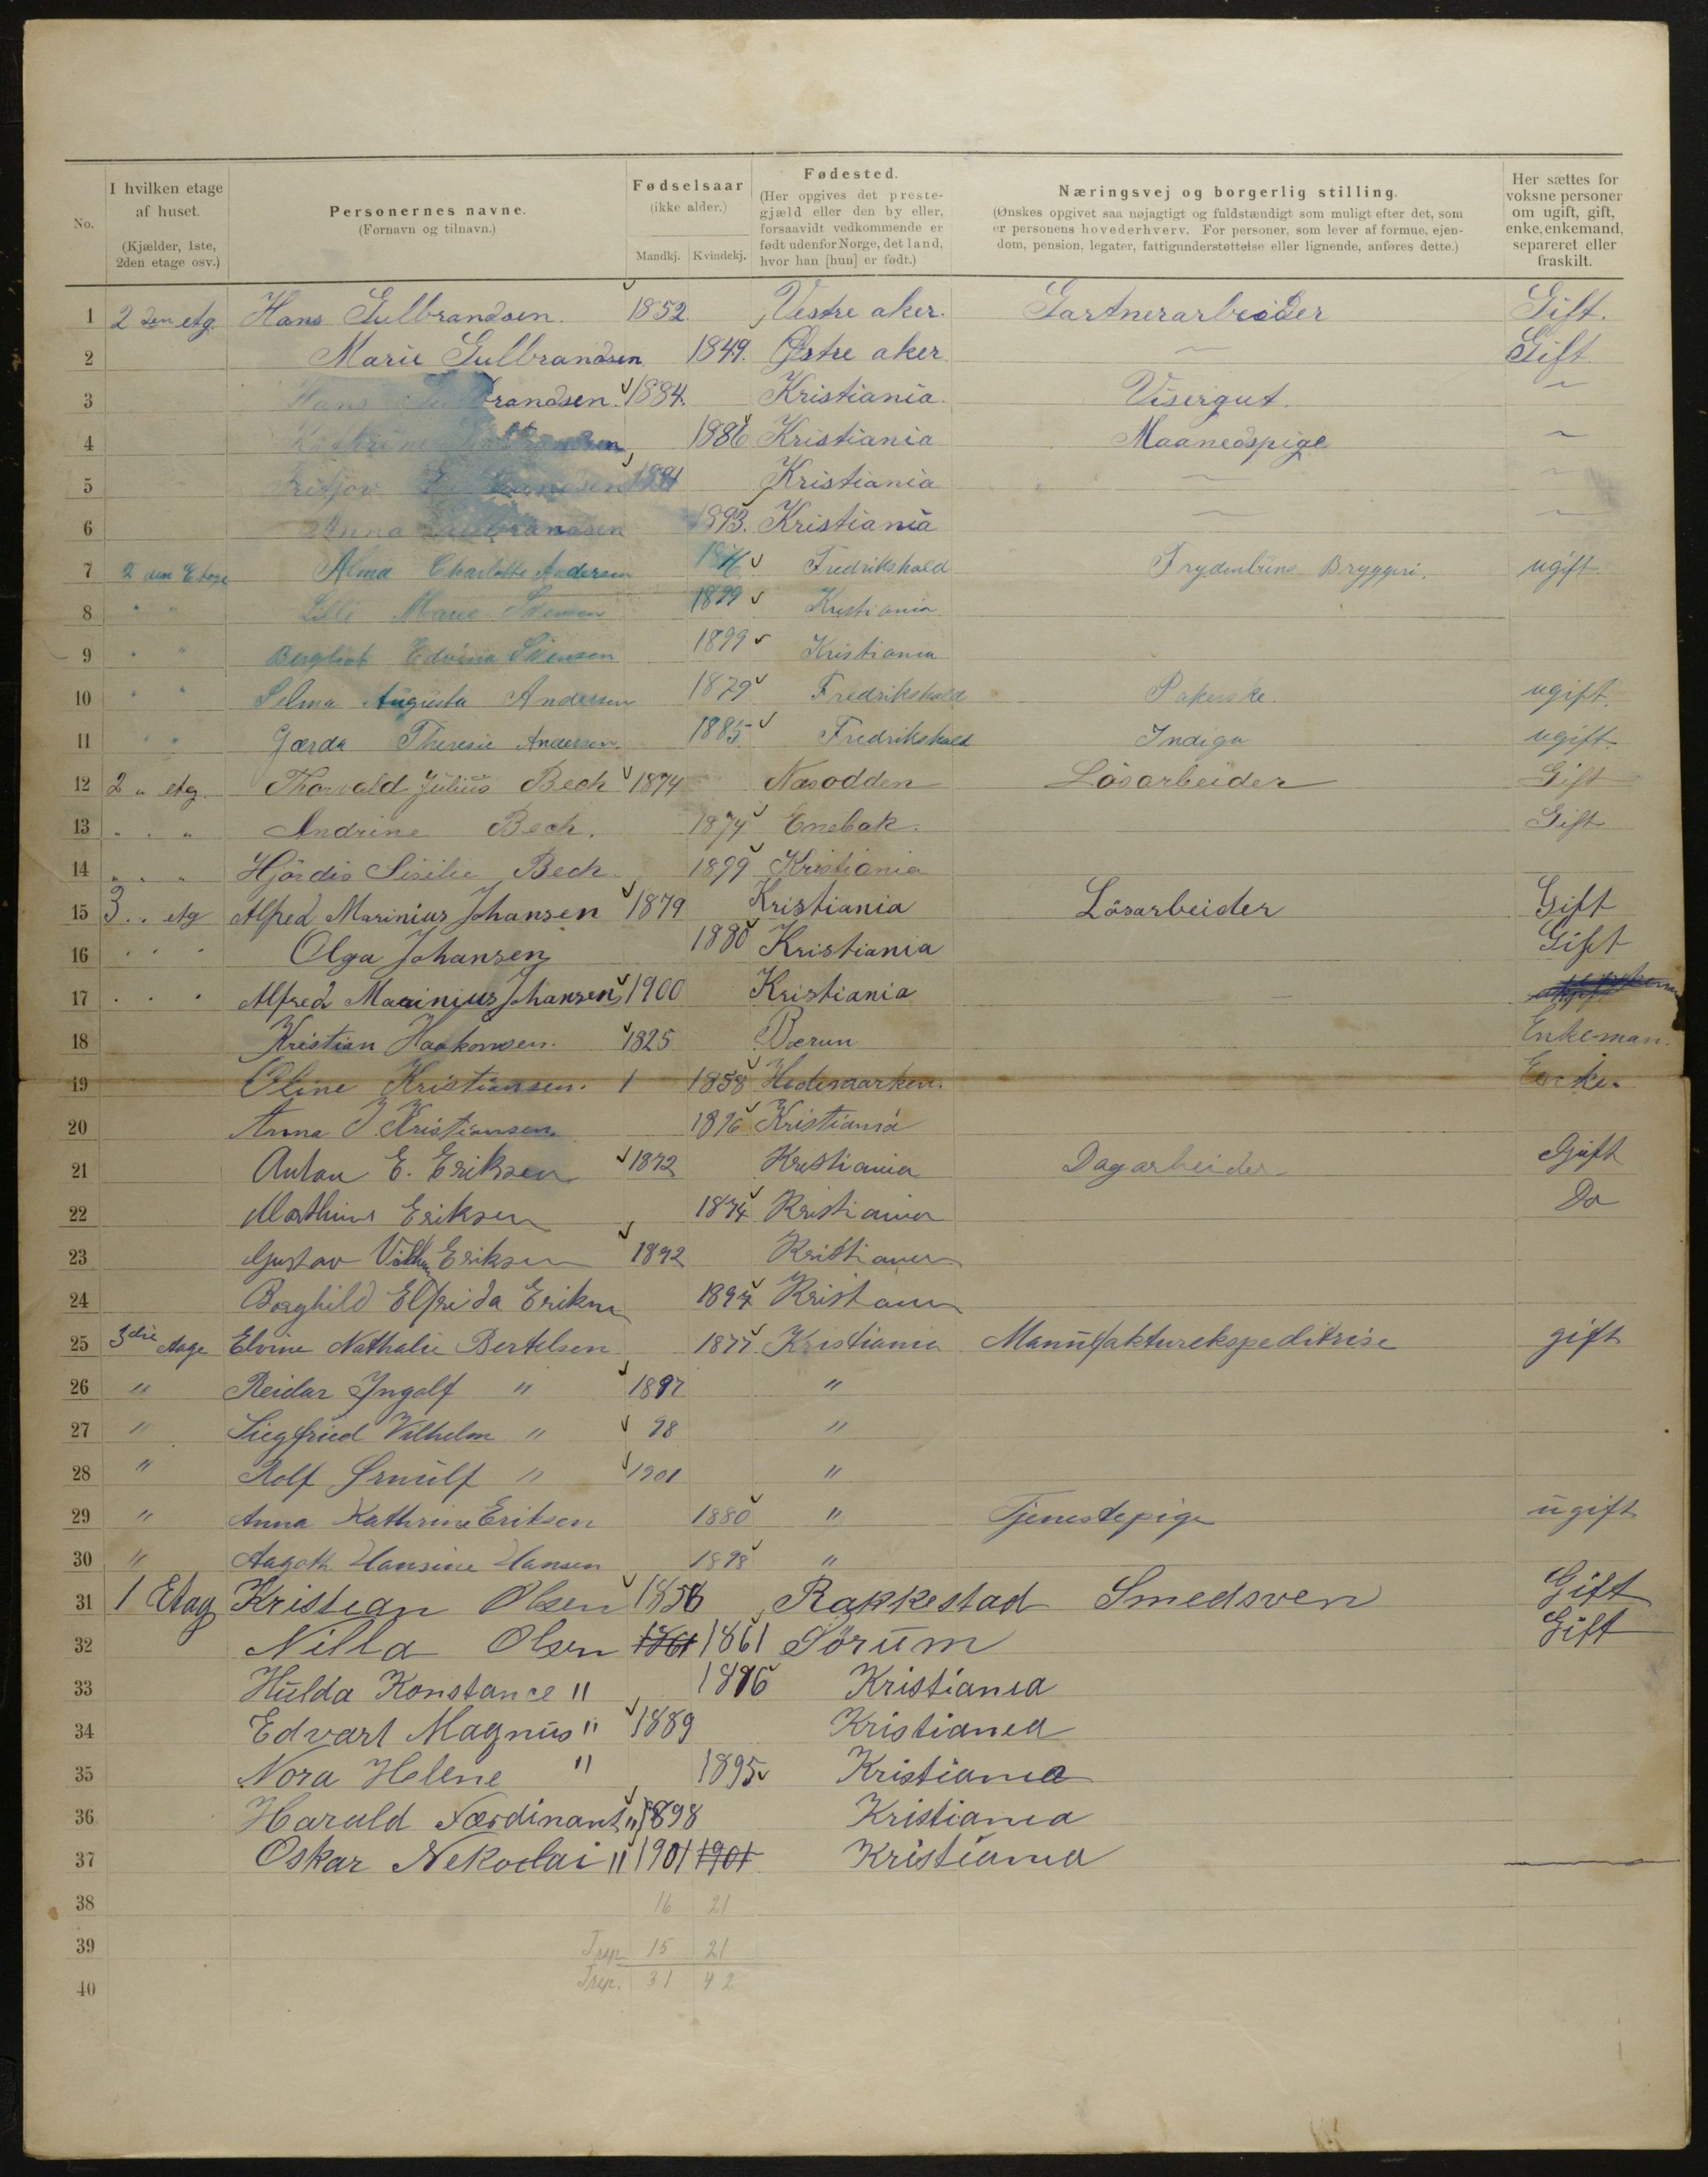 No.
I hvilken etage af huset. (Kjælder, 1ste, 2den etage osv.)
Personernes navne. (Fornavn og tilnavn.)
Fødselsaar (ikke alder.) Mandkj. Kvindekj.
Fødested. (Her opgives det prestegjæld eller den by eller, forsaavidt vedkommende er født udenfor Norge, det land, hvor han [hun] er født.)
Næringsvej og borgerlig stilling. (Ønskes opgivet saa nøjagtigt og fuldstændigt som muligt efter det, som er personens hovederhverv. For personer, som lever af formue, ejendom, pension, legater, fattigunderstøttelse eller lignende, anføres dette.)
Her sættes for voksne personer om ugift, gift, enke, enkemand, separeret eller fraskilt.
1 2 den etg. Hans Gulbrandsen. 1852. Vestre aker. Gartnerarbeider Gift.
2 Marie Gulbrandsen 1849. Østre aker. — Gift.
3 Hans Gulbrandsen. 1884. Kristiania. Visergut. —
4 Gulbrandsen 1886 Kristiania Maanedspige —
5 Fritjov Gulbrandsen Kristiania — —
6 Anna Gulbrandsen 1893. Kristiania — —
7 2 den Etage Alma Charlotte Andersen Fredrikshald Frydenlüns Bryggeri. ugift.
8 " " Lilli Marie 1899 Kristiania
9 " " Bergliot Edvina Svensen 1899 Kristiania
10 " " Selma Augusta Andersen 1879 Fredrikshald Pakerske. ugift.
11 " " Gærda Theresie Andersen. 1885 Fredrikshald Indiga ugift.
12 2 " etg. Thorvald Julius Bech 1874 Næsodden Lösarbeider Gift
13 " " " Andrine Bech. 1874 Enebak. Gift
14 " " " Hjördis Sisilie Bech. 1899 Kristiania
15 3 " etg Alfred Marinius Johansen 1879 Kristiania Lösarbeider Gift
16 " " " Olga Johansen 1880 Kristiania Gift
17 " " " Alfred Marinius Johansen 1900 Kristiania
18 Kristian Haakonsen. 1825 Bærum Enkeman.
19 Oline Kristiansen. 1 1858 Hedemarken. Enke.
20 Anna J. Kristiansen. 1896 Kristiania
21 Anton E. Eriksen 1872 Kristiania Dagarbeider Gift
22 Mathine Eriksen 1874 Kristiania Do
23 Gustav Eriksen 1892 Kristiania
24 Borghild Elfrida Eriksen 1894 Kristiania
25 3die Etage Elvine Nathalie Bertelsen 1877 Kristiania Manufakturekspeditrise gift
26 " Reidar Ingolf " 1897 "
27 " Siegfried Vilhelm " 98 "
28 " Rolf Ørnulf " 1901 "
29 " Anna Kathrine Eriksen 1880 " Tjenestepige ugift
30 " Aagoth Hansine Hansen 1898 "
31 1 Etag Kristian Olsen 1856 Rakkestad Smedsven Gift
32 Nilla Olsen 1861 1861 Sörum Gift
33 Hulda Konstance " 1886 Kristiania
34 Edvart Magnus " 1889 Kristiania
35 Nora Helene " 1895 Kristiania
36 Harald Færdinant " 1898 Kristiania
37 Oskar Nekolai " 1901 1901 Kristiania
38 16 21
39 Tsp. 15 21
40 Tsp. 31 42